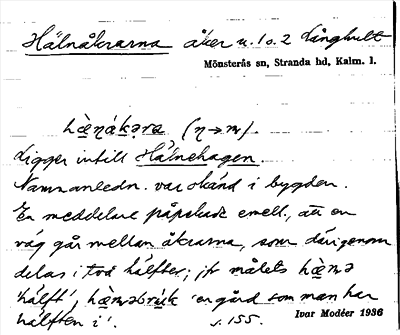 Hälnåkrarna åker u. 1 o. 2 Långhult
Mönsterås sn, Stranda hd, Kalm. l.
hæ̀ŋákəra (ŋ→m).
Ligger intill Hälnehagen.
Namnanledn. var okänd i bygden.
En meddelare påpekade emell., att en
väg går mellan åkrarna, som därigenom
delas i två hälfter; jfr målets hæ̀nə
'hälft', hæ̀nəbrúk 'en gård som man har
hälften i'. s. 155.
Ivar Modéer 1936